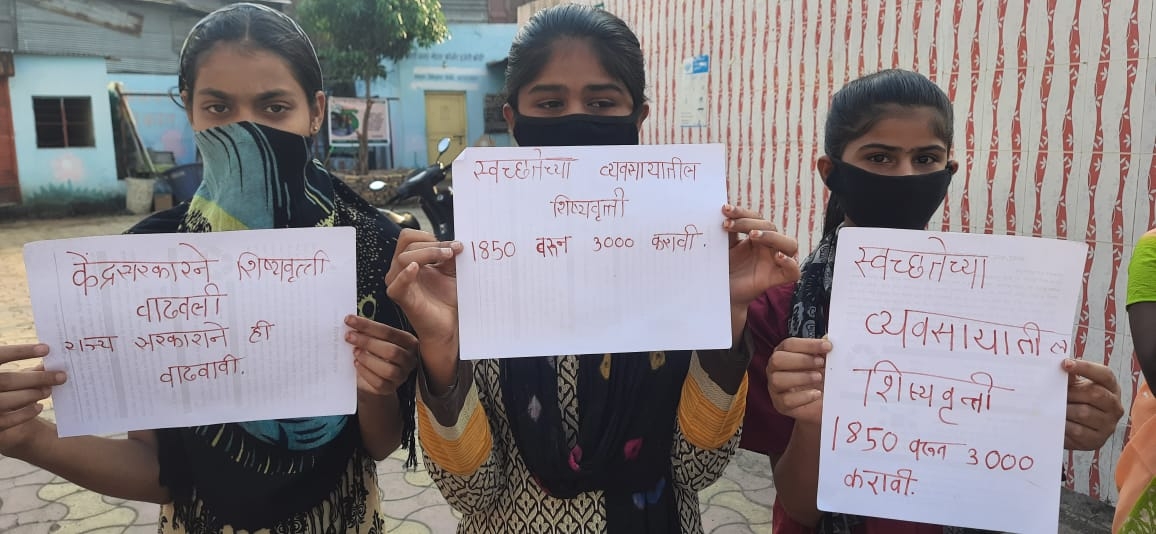 केंद्रसरकारने शिष्यवृत्ती
वाढवली
राज्य सरकाराने ही
वाढवावी.
स्वच्छतेच्या व्यवसायातील
शिष्यवृत्ती
1850 वरुन 3000 करावी.
स्वच्छतेच्या
व्यवसायातील
शिष्यवृत्ती
1850 वरुन 3000
करावी.